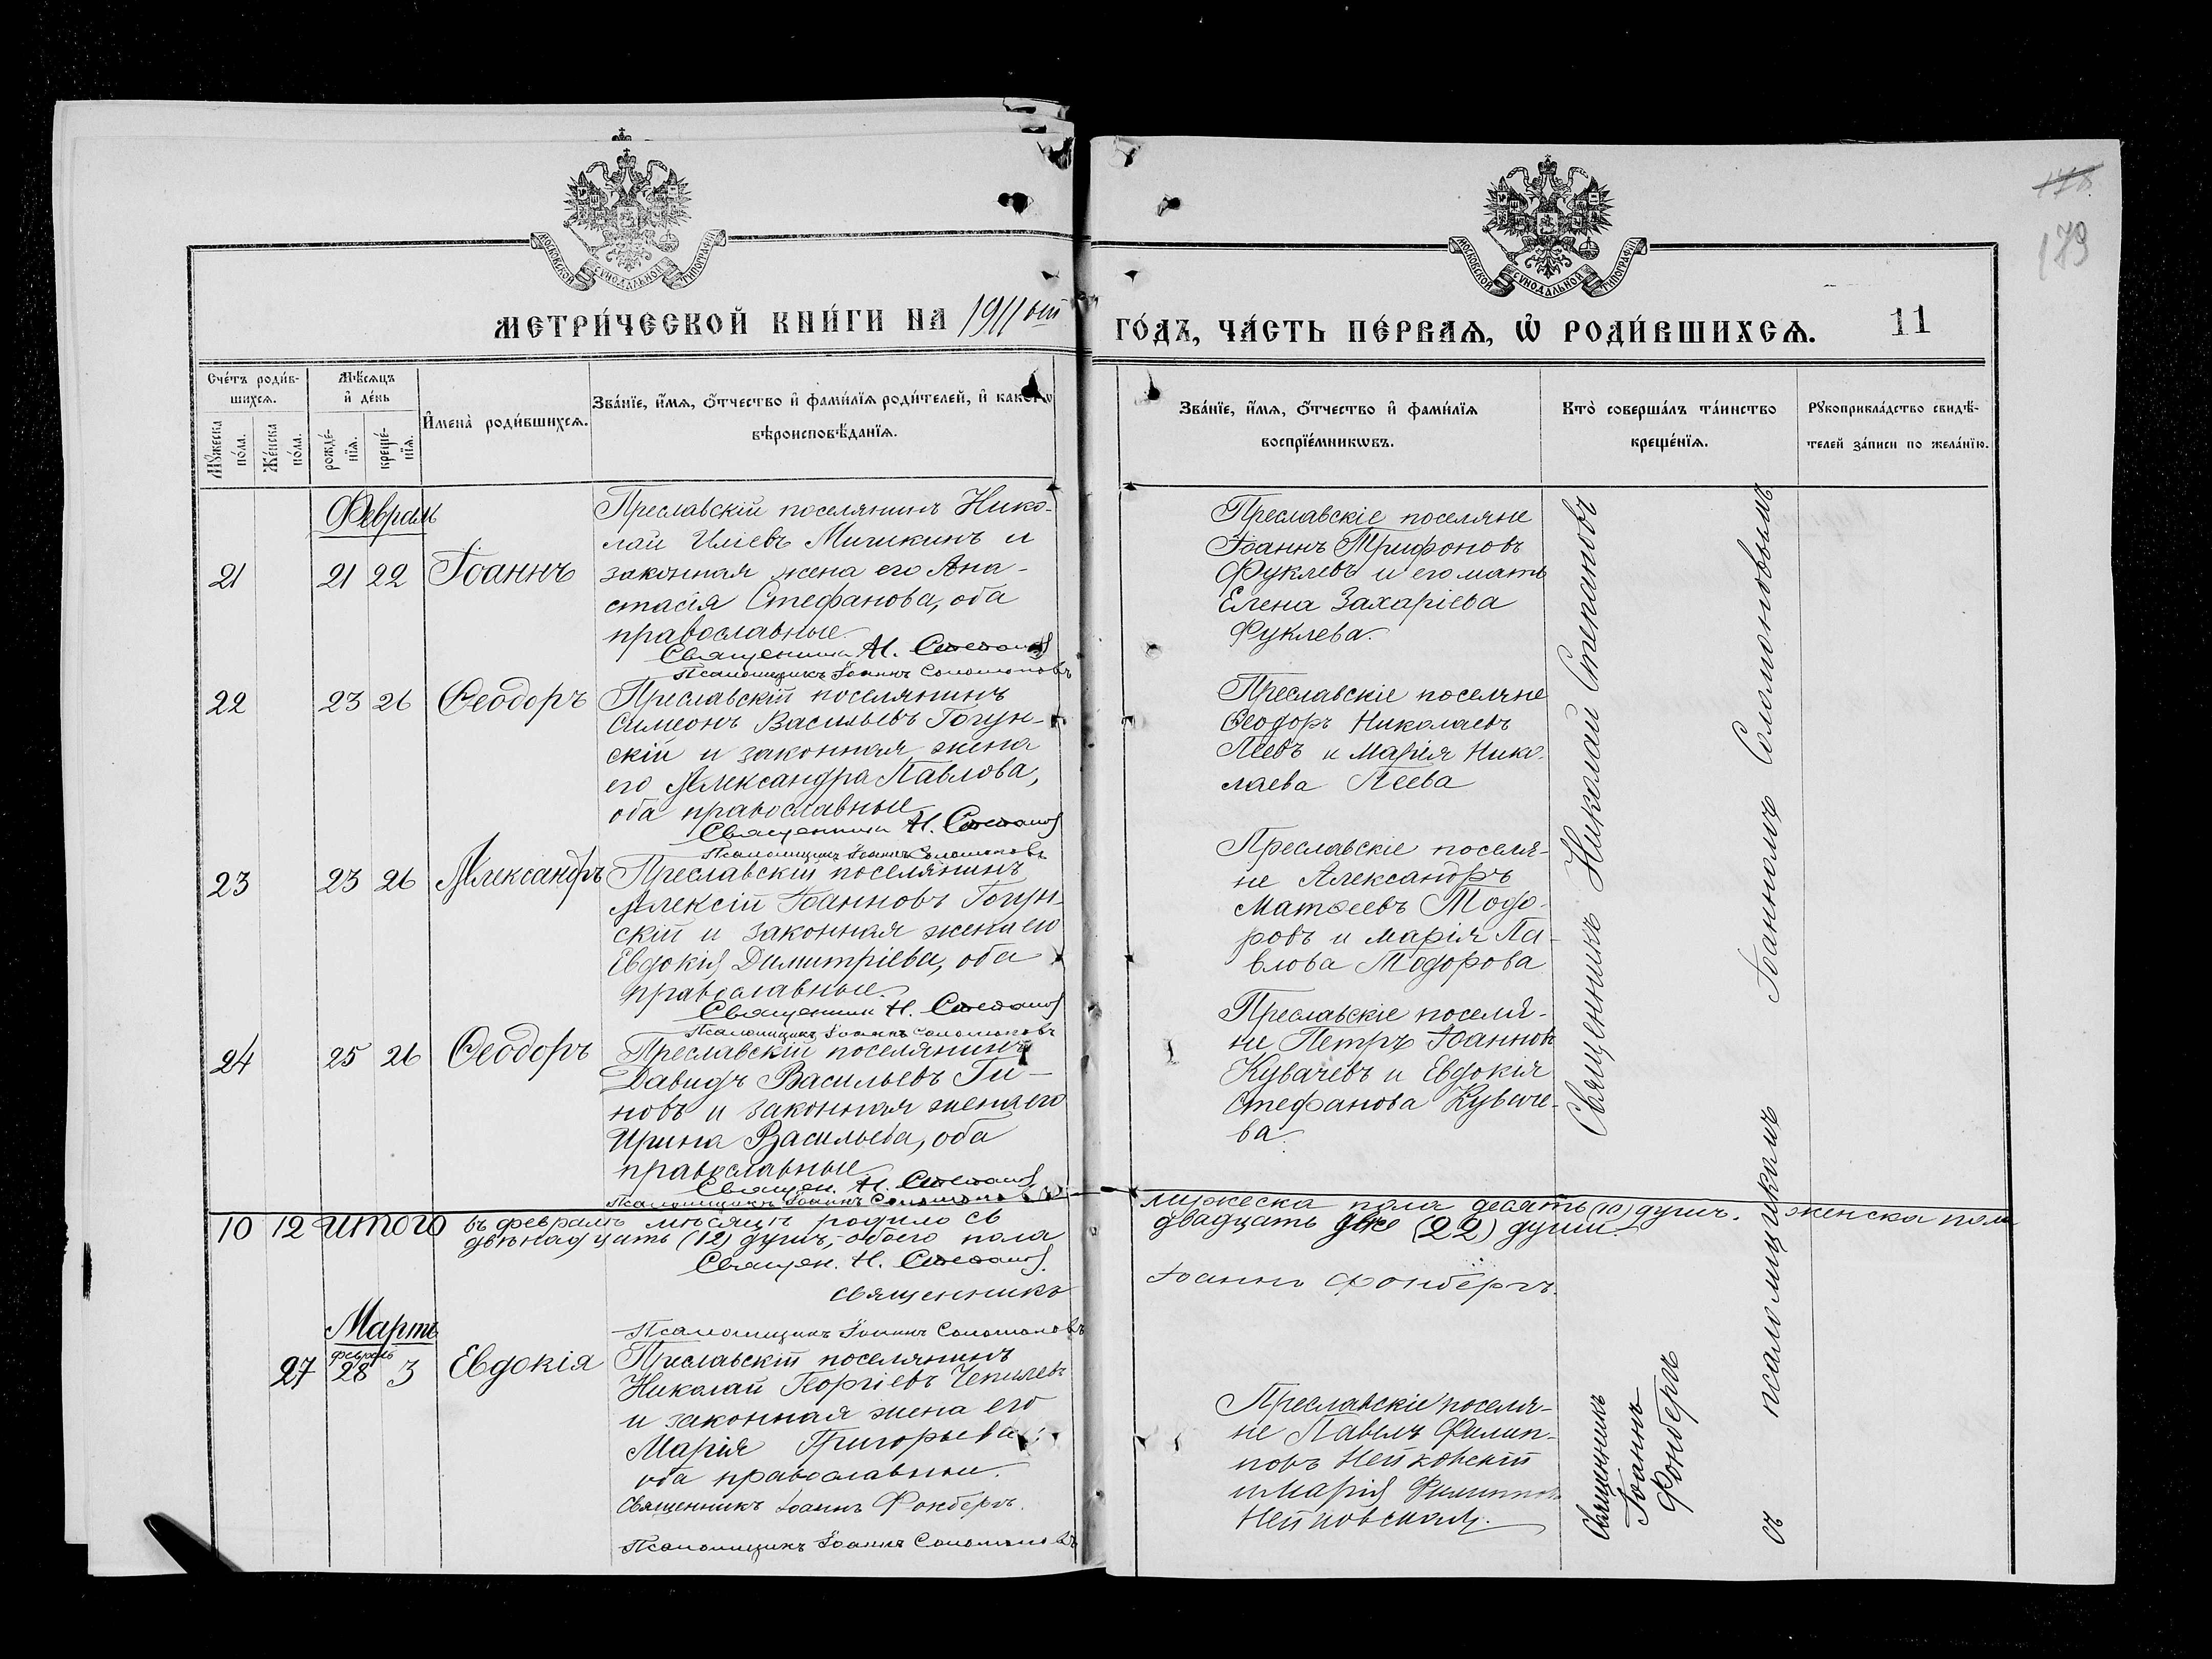 178
179
МОСКОВСКОЙ СѴНОДАЛЬНОЙ ТИПОГРАФІИ
МОСКОВСКОЙ СѴНОДАЛЬНОЙ ТИПОГРАФІИ
МЕТРИ́ЧЕСКОЙ КНИ́ГИ НА 1911 ый
ГО́ДЪ, ЧА́СТЬ ПЕ́РВАѦ, Ѡ҆ РОДИ́ВШИХСѦ.
11
Сче́тъ роди́в-
шихсѧ.
Мѹ́жеска
по́ла.
Же́нска
по́ла.
Мѣ́сѧцъ
и҆ де́нь
рожде́-
нїѧ.
креще́-
нїѧ.
И҆мена̀ роди́вшихсѧ.
Зва́нїе, и҆́мѧ, ѻ҆́тчество и҆ фами́лїѧ роди́телей, и҆ како́гѡ
вѣроисповѣ́данїѧ.
Зва́нїе, и҆́мѧ, ѻ҆́тчество и҆ фами́лїѧ
воспрїе́мникѡвъ.
Кто̀ соверша́лъ та́инство
креще́нїѧ.
Рѹкоприкла́дство свидѣ́-
телей за́писи по жела́нїю.
Февраль
21
21 22
Іоаннъ
Преславскій поселянинъ Нико-
лай Иліевъ Мишкинъ и
законная жена его Ана-
стасія Стефанова, оба
православные.
Священникъ Н. Степановъ
Псаломщикъ Іоаннъ Соломоновъ
Преславскіе поселяне
Іоаннъ Трифоновъ
Фуклевъ и его мать
Елена Захаріева
Фуклева.
22
23 26
Ѳеодоръ
Преславскій поселянинъ
Симеонъ Васильевъ Гогун-
скій и законная жена
его Александра Павлова,
оба православные
Священникъ Н. Степановъ
Псаломщикъ Іоаннъ Соломоновъ
Преславскіе поселяне
Ѳеодоръ Николаевъ
Пеевъ и Марія Нико-
лаева Пеева
23
23 26
Александръ
Преславскій поселянинъ
Алексій Іоанновъ Гогун-
скій и законная жена его
Евдокія Димитріева, оба
православные.
Священник Н. Степановъ
Псаломщикъ Іоаннъ Соломоновъ
Преславскіе поселя-
не Александръ
Матѳеевъ Тодо-
ровъ и Марія Па-
влова Тодорова
24
25 26
Ѳеодоръ
Преславскій поселянинъ
Давидъ Васильевъ Ги-
новъ и законная жена его
Ирина Васильева, оба
православные
Священ. Н. Степановъ
Псаломщикъ Іоаннъ Соломоновъ
Преславскіе поселя-
не Петръ Іоанновъ
Кувачевъ и Евдокія
Стефанова Куваче-
ва.
Священникъ Николай Степановъ
съ псаломщикомъ Іоанномъ Соломоновымъ
10 12 итого въ февралѣ мѣсяцѣ родилось
мужеска пола десять (10) душъ. женска пола
двѣнадцать (12) душъ, обоего пола
двадцать двѣ (22) души.
Священ. Н. Степановъ.
священникъ
Іоаннъ Фонбергъ.
Псаломщикъ Іоаннъ Соломоновъ
Мартъ
февраль
27
28 3
Евдокія
Преславскій поселянинъ
Николай Георгіевъ Чепилевъ
и законная жена его
Марія Григорьева;
оба православные.
Священникъ Іоаннъ Фонбергъ.
Псаломщикъ Іоаннъ Соломоновъ
Преславскіе поселя-
не Павелъ Филип-
повъ Нейковскій
и Марія Филиппова
Нейковская.
Священникъ
Іоаннъ
Фонбергъ